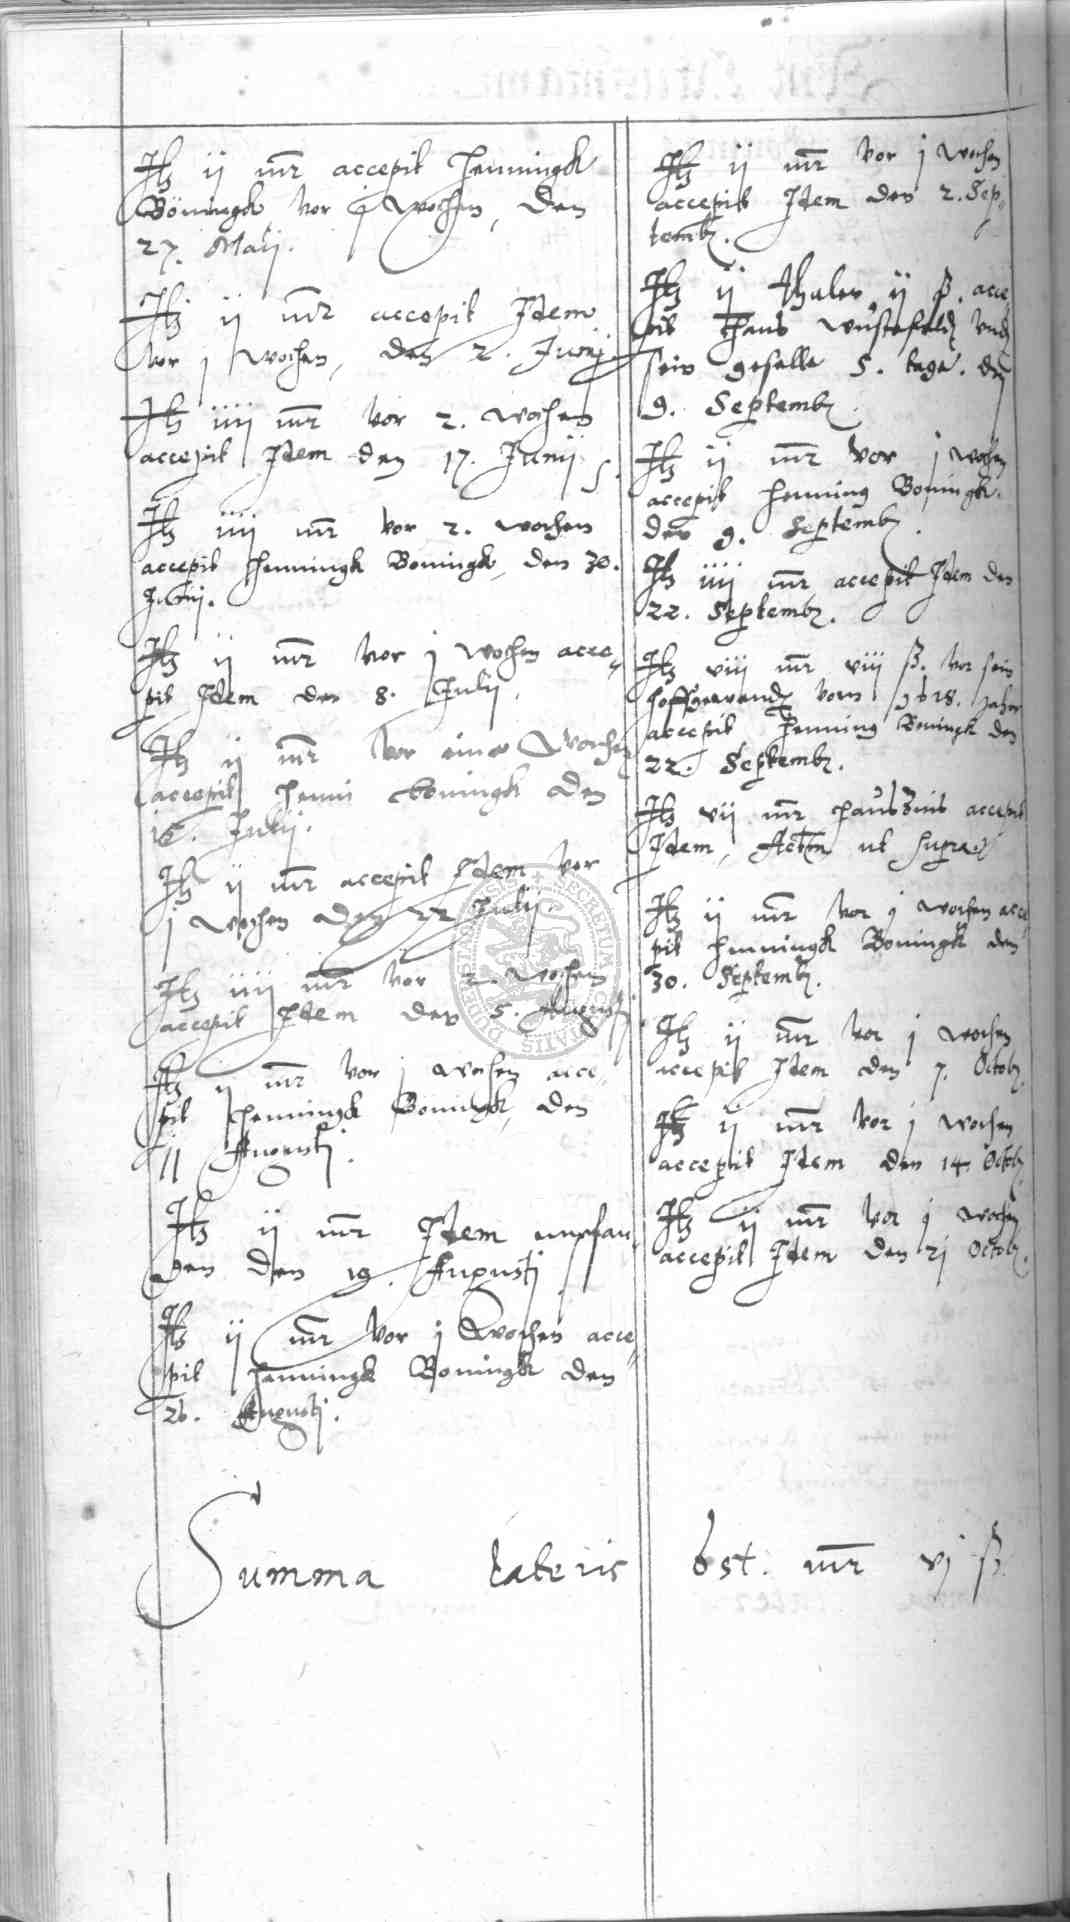 Itz ij mr accepit Henningk
Böningk vor j Wochen, den
27. Maij.
Itz ij mr accepit Idem
vor j wochen, den 2. Junij
Itz iiij mr vor 2. wochen
accepit Idem den 17. Junij
Itz iiij mr vor 2. wochen
accepit Henningk Boningk, den 30.
Junij.
Itz ij mr vor j wochen acce-
pit Idem den 8. Julij.
Itz ij mr vor eine Wochen
accepit Henni Boningk den
Julij.
Itz ij mr accepit Idem vor
j wochen den 22 Julij.
Itz iiij mr vor 2. wochen
accepit Idem den 5. Augustj
Itz ij mr vor j wochen acce-
pit Henningk Boningk, den
11 Augustj.
Itz ij mr Idem empfan-
den 19. Augustj
Itz ij mr vor j Wochen acce-
pit Henningk Boningk den
26. Augustj.
Itz ij mr vor j wochen
accepit Idem den 2. Sep-
temb.
Itz ij thaler ij ß. acce-
pit Hans Wüstefeldt vnd
sein geselle 5. tage. den
9. Septemb.
Itz ij mr vor j wochen
accepit Henning Boningk.
den 9. Septemb.
Itz iiij mr accepit Idem den
22. Septemb.
Itz viij mr viij ß. vor sein
hoffgewandt vom jahr
accepit Henning Boningk den
22. Septemb.
Itz vij mr Haußzins accepit
Idem, Actm ut supra.
Itz ij mr vor j wochen acce-
pit Henningk Boningk den
30. Septemb.
Itz ij mr vor j wochen
accepit Idem den 7. Octob.
Itz ij mr vor j wochen
accepit Idem den 14. Octob.
Itz ij mr vor j wochen
accepit Idem den 21 Octob.
Summa lateris 65½. mr vj ß.
SECRETUM CIVITATIS DUDERSTADENSIS